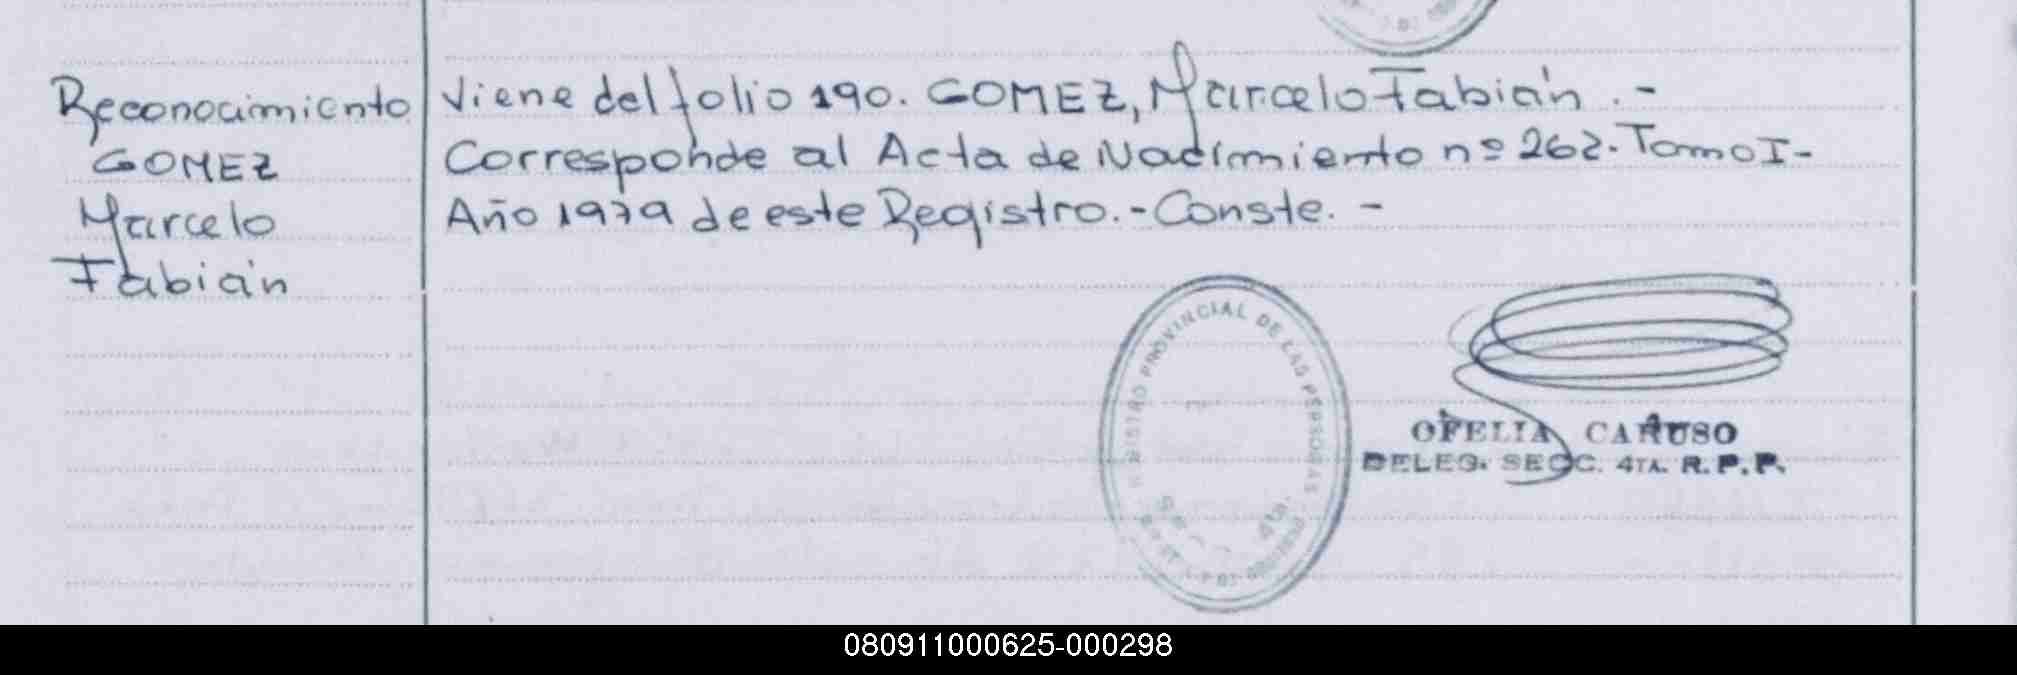 Reconocimiento
GOMEZ
Marcelo
Fabián
Viene del folio 190. GOMEZ, Marcelo Fabián.-
Corresponde al Acta de Nacimiento nº 262. Tomo I-
Año 1979 de este Registro.-Conste.-
REGISTRO PROVINCIAL DE LAS PERSONAS
4ta.
OFELIA CARUSO
DELEG. SECC. 4TA. R.P.P.
080911000625-000298